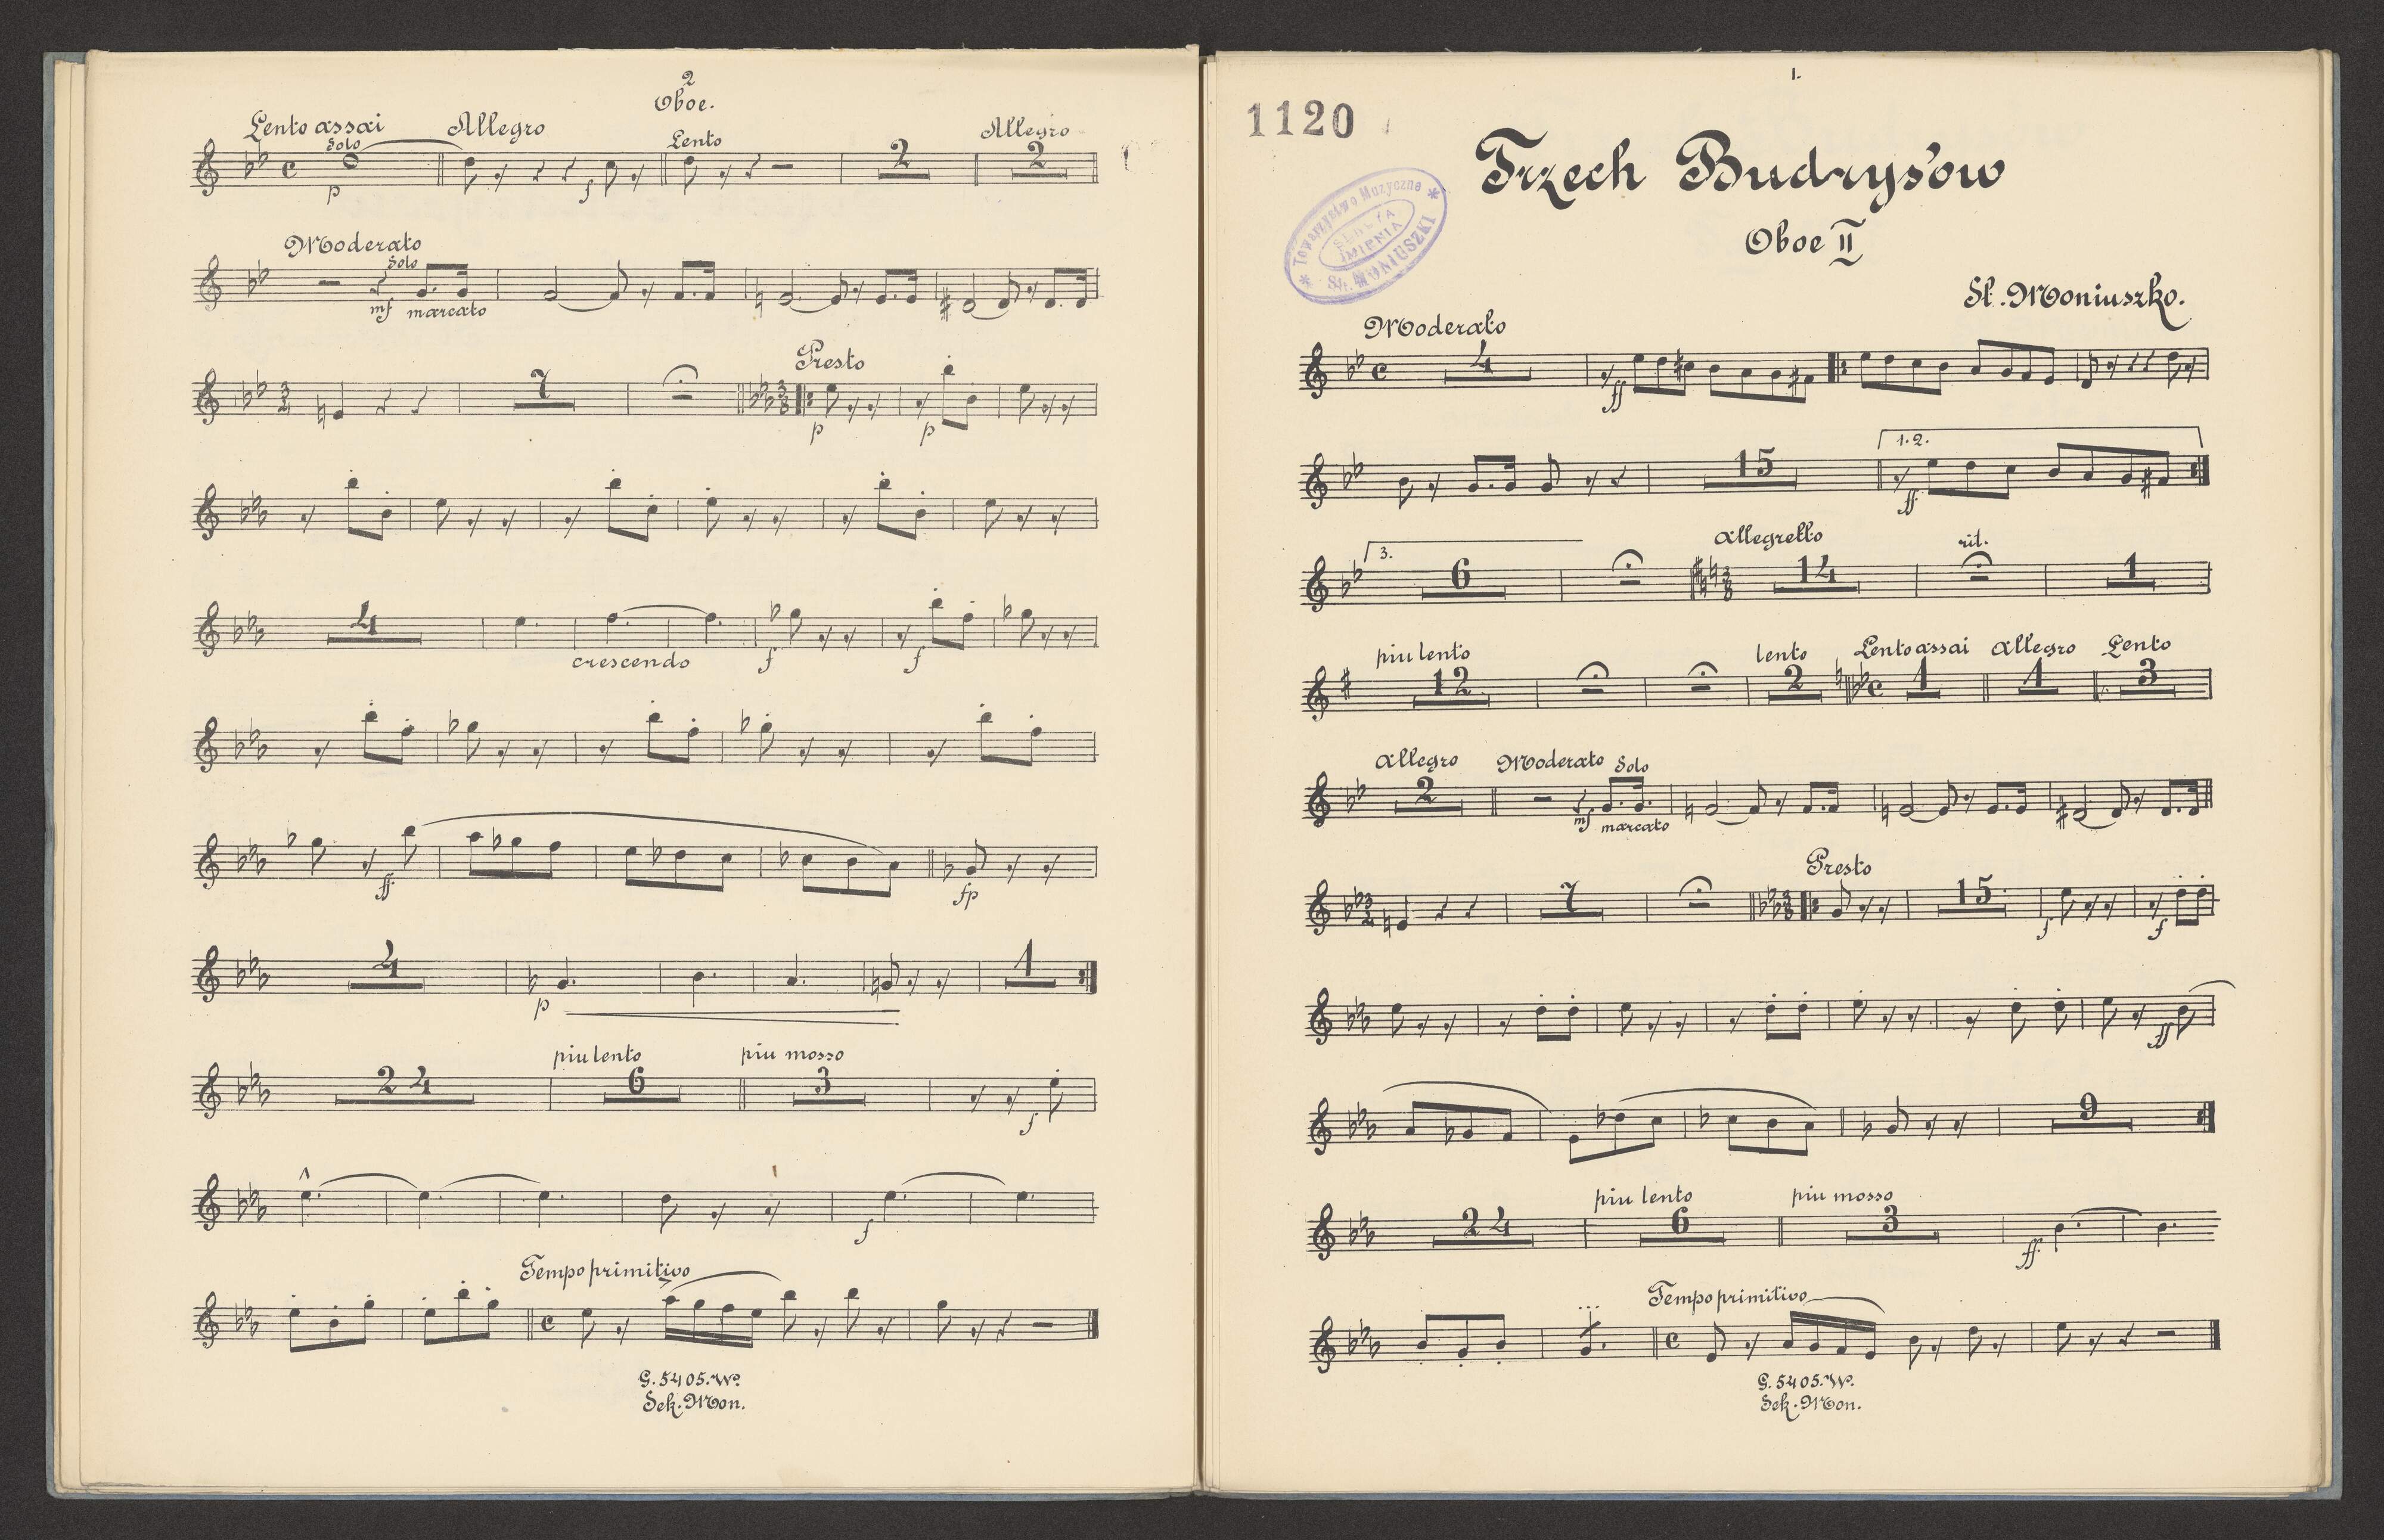 2
Oboe.
Lento assai Allegro Lento Allegro
Solo
p f 2 2
Moderato
Solo
mf marcato
Presto
7
p p
4
crescendo f f
ff fp
4 1
p
piu lento piu mosso
24 6 3
f
f
Tempo primitivo
G. 5405. W.
Sek. Mon.
1.
1120
Trzech Budrysów
Towarzystwo Muzyczne
IMIENIA
St. MONIUSZKI
Oboe II
St. Moniuszko.
Moderato
4
ff
1. 2.
15
ff
3. Allegretto rit.
6 14 1
piu lento lento Lento assai Allegro Lento
12 2 1 1 3
Allegro Moderato Solo
2
mf marcato
Presto
7 15
f f
ff
9
piu lento piu mosso
24 6 3
ff
Tempo primitivo
G. 5405. W.
Sek. Mon.